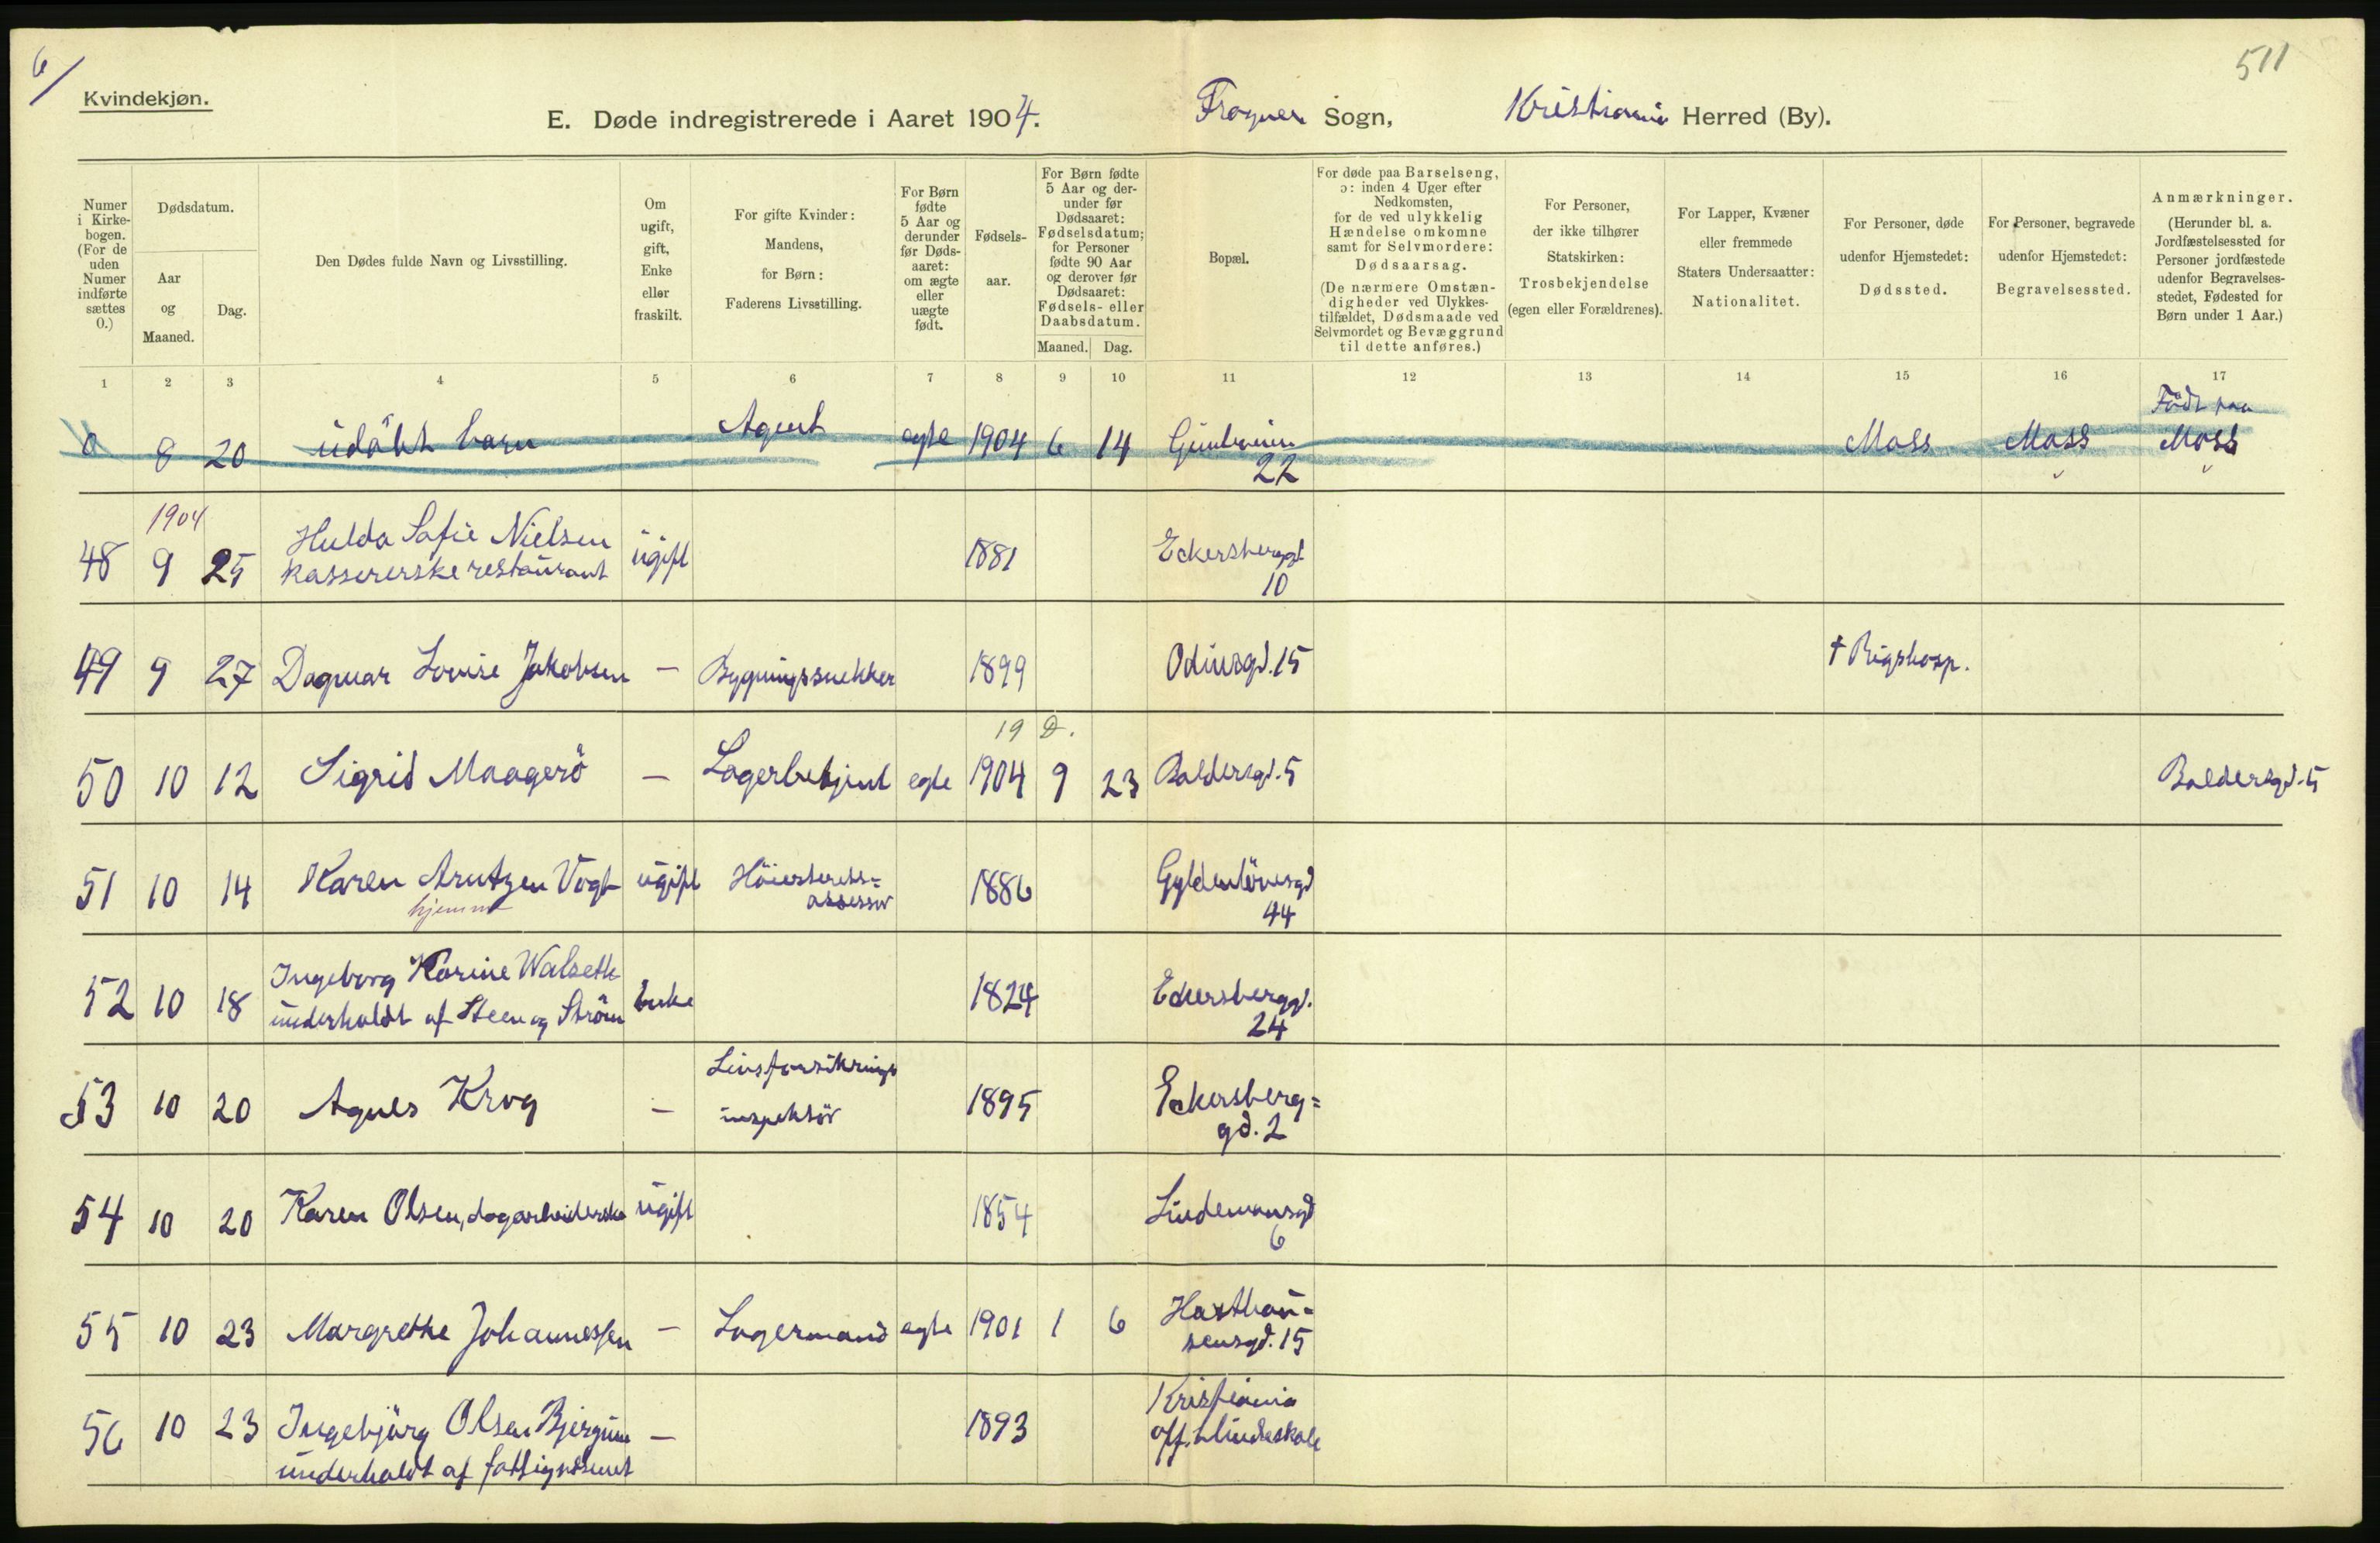 6/
511
Kvindekjøn.
E. Døde indregistrerede i Aaret 1904. Frogner Sogn, Kristiania Herred (By).
Numer i Kirke- bogen. (For de uden Numer indførte sættes 0.)
Dødsdatum.
Aar og Maaned.
Dag.
Den Dødes fulde Navn og Livsstilling.
Om ugift, gift, Enke eller fraskilt.
For gifte Kvinder: Mandens, for Børn: Faderens Livsstilling.
For Børn fødte 5 Aar og derunder før Døds- aaret: om ægte eller uægte født.
Fødsels- aar.
For Børn fødte 5 Aar og der- under før Dødsaaret: Fødselsdatum; for Personer fødte 90 Aar og derover før Dødsaaret: Fødsels- eller Daabsdatum.
Maaned. Dag.
Bopæl.
For døde paa Barselseng, ɔ: inden 4 Uger efter Nedkomsten, for de ved ulykkelig Hændelse omkomne samt for Selvmordere: Dødsaarsag. (De nærmere Omstæn- digheder ved Ulykkes- tilfældet, Dødsmaade ved Selvmordet og Bevæggrund til dette anføres.)
For Personer, der ikke tilhører Statskirken: Trosbekjendelse (egen eller Forældrenes).
For Lapper, Kvæner eller fremmede Staters Undersaatter: Nationalitet.
For Personer, døde udenfor Hjemstedet: Dødssted.
For Personer, begravede udenfor Hjemstedet: Begravelsessted.
Anmærkninger. (Herunder bl. a. Jordfæstelsessted for Personer jordfæstede udenfor Begravelses- stedet, Fødested for Børn under 1 Aar.)
1 2 3 4 5 6 7 8 9 10 11 12 13 14 15 16 17
0 8 20 udöbt barn Agent egte 1904 6 14 Gimleveien 22 Moss Moss Födt paa Moss
1904
48 9 25 Hulda Sofie Nielsen ugift 1881 Eckersbergsgd. 10
kassererske restaurant
49 9 27 Dagmar Lovise Jakobsen — Bygningssnekker 1899 Odinsgd. 15 † Rigshosp.
19 D.
50 10 12 Sigrid Maagerö — Lagerbetjent egte 1904 9 23 Baldersgd. 5 Baldersgd. 5
51 10 14 Karen Arntzen Vogt ugift Höiesterets= assessor 1886 Gyldenlövesgd 44
hjemme
52 10 18 Ingeborg Karine Walseth enke 1824 Eckersbergsgd. 24
underholdt af Steen og Ström
53 10 20 Agnes Krog — Livsforsikrings inspektör 1895 Eckersberg= gd. 2
54 10 20 Karen Olsen, dagarbeiderske ugift 1854 Lindemansgd 6
55 10 23 Margrethe Johannessen — Lagermand egte 1901 1 6 Haxthau= sensgd. 15
56 10 23 Ingebjörg Olsen — 1893 Kristiania off. blindeskole
underholdt af fattigvæsenet